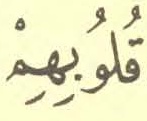 قُلُوُبِهِمْ